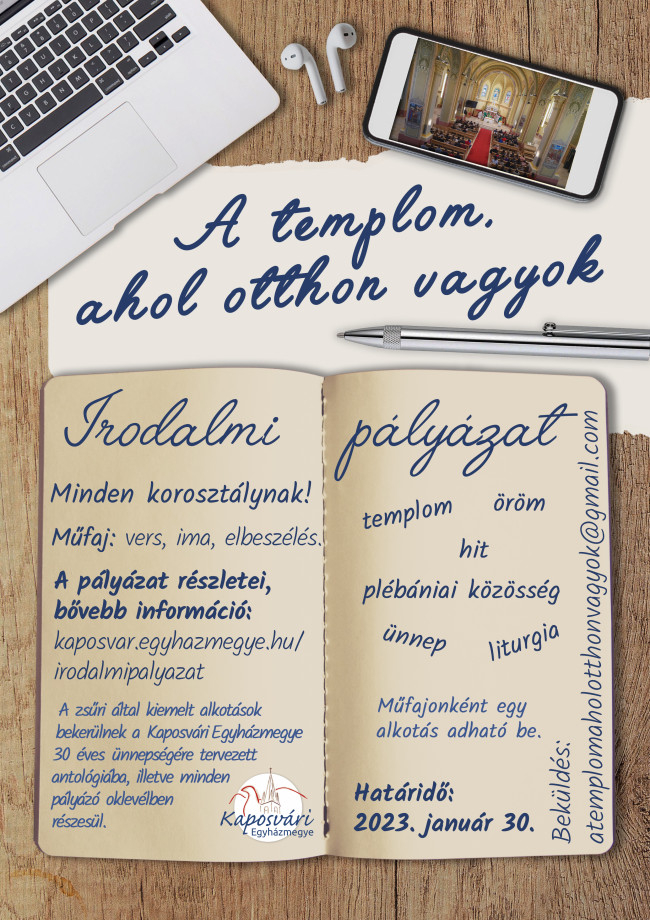 A templom,
ahol otthon vagyok
Irodalmi pályázat
Minden korosztálynak!
Műfaj: vers, ima, elbeszélés.
A pályázat részletei,
bővebb információ:
kaposvar.egyhazmegye.hu/
irodalmipalyazat
A zsűri által kiemelt alkotások
bekerülnek a Kaposvári Egyházmegye
30 éves ünnepségére tervezett
antológiába, illetve minden
pályázó oklevélben
részesül.
Kaposvári
Egyházmegye
templom öröm
hit
plébániai közösség
ünnep liturgia
Műfajonként egy
alkotás adható be.
Határidő:
2023. január 30.
Beküldés:
atemplomaholotthonvagyok@gmail.com